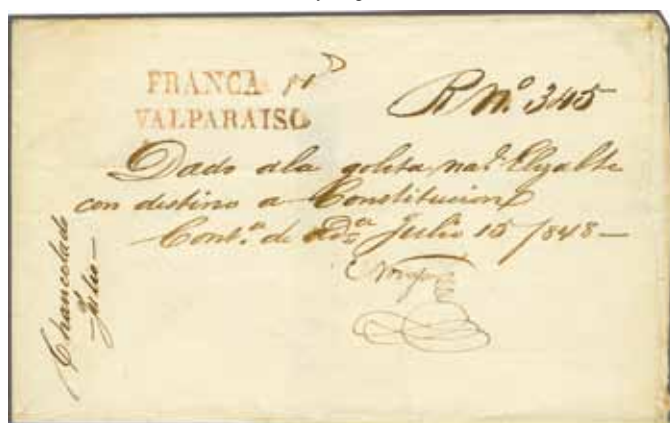 FRANCA
VALPARAISO
R Nº 345
Dado ala goleta nal. Elizalte
con destino a Constitucion
Cont.ª de Julio 15/848—
Chancelado
Julio—